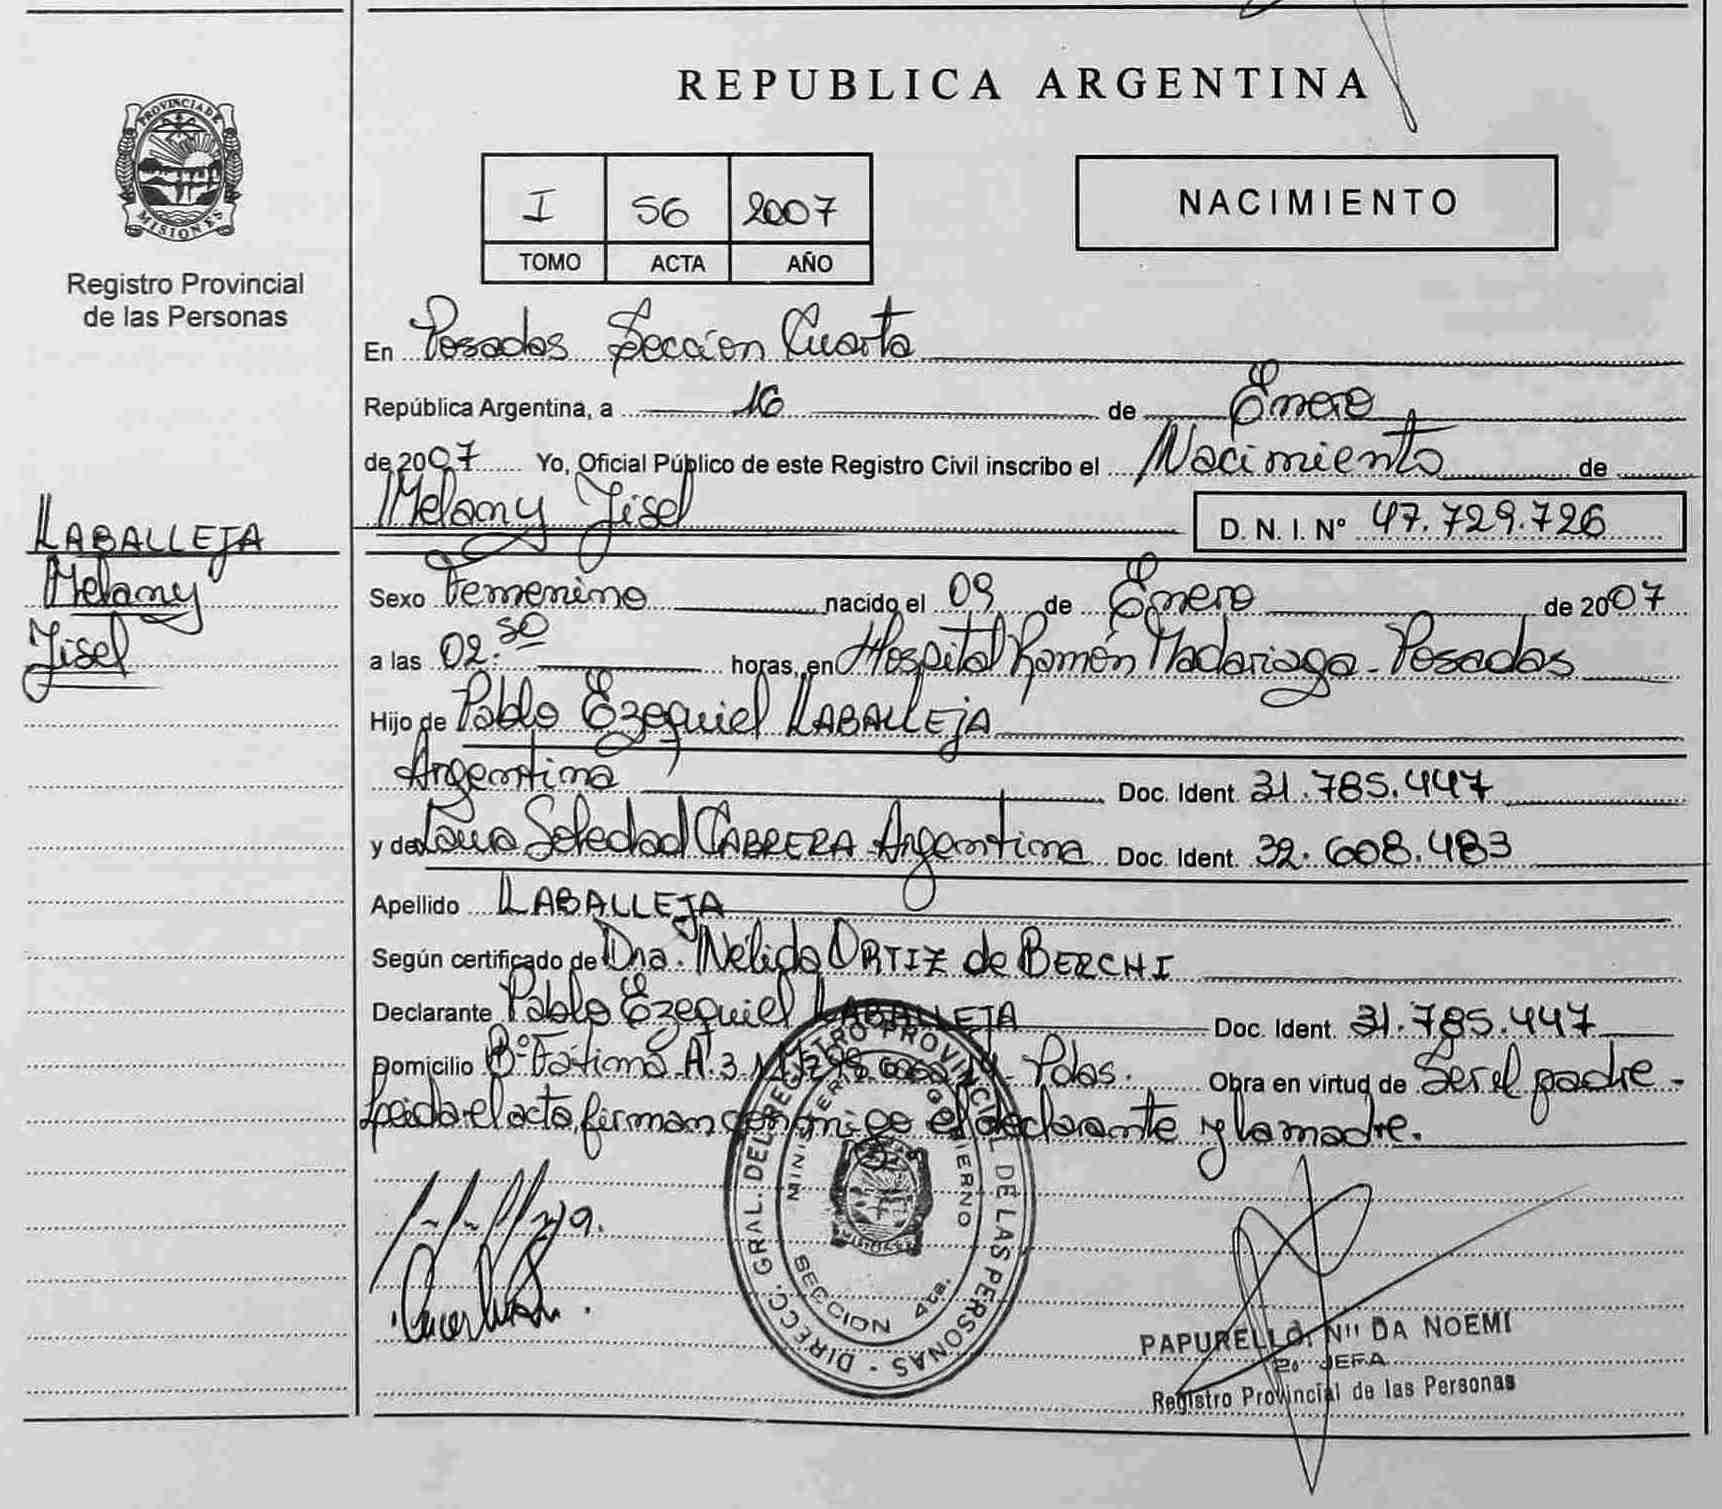 REPUBLICA ARGENTINA
PROVINCIA DE
MISIONES
Registro Provincial
de las Personas
I 56 2007
TOMO ACTA AÑO
NACIMIENTO
En Posadas Sección Cuarta
República Argentina, a 16 de Enero
de 2007 Yo, Oficial Público de este Registro Civil inscribo el Nacimiento de
Melany Jisel D. N. I. Nº 47.729.726
LABALLEJA
Melany
Jisel
Sexo Femenino nacido el 09 de Enero de 2007
a las 02:50 horas, en Hospital Ramón Madariaga - Posadas
Hijo de Pablo Ezequiel LABALLEJA
Argentina Doc. Ident. 31.785.447
y de Soledad CABRERA - Argentina Doc. Ident. 32.608.483
Apellido LABALLEJA
Según certificado de Dra. Nélida ORTIZ de BERCHI
Declarante Pablo Ezequiel LABALLEJA Doc. Ident. 31.785.447
Domicilio Bº Fátima A.3 Pdas. Obra en virtud de Ser el padre -
Leida el acta, firman conmigo el declarante y la madre.
DIRECC. GRAL. DEL REGISTRO PROVINCIAL DE LAS PERSONAS -
MINISTERIO GOBIERNO
SECCION 4ta.
MISIONES
PAPURELLO, DA NOEMI
2º JEFA
Registro Provincial de las Personas